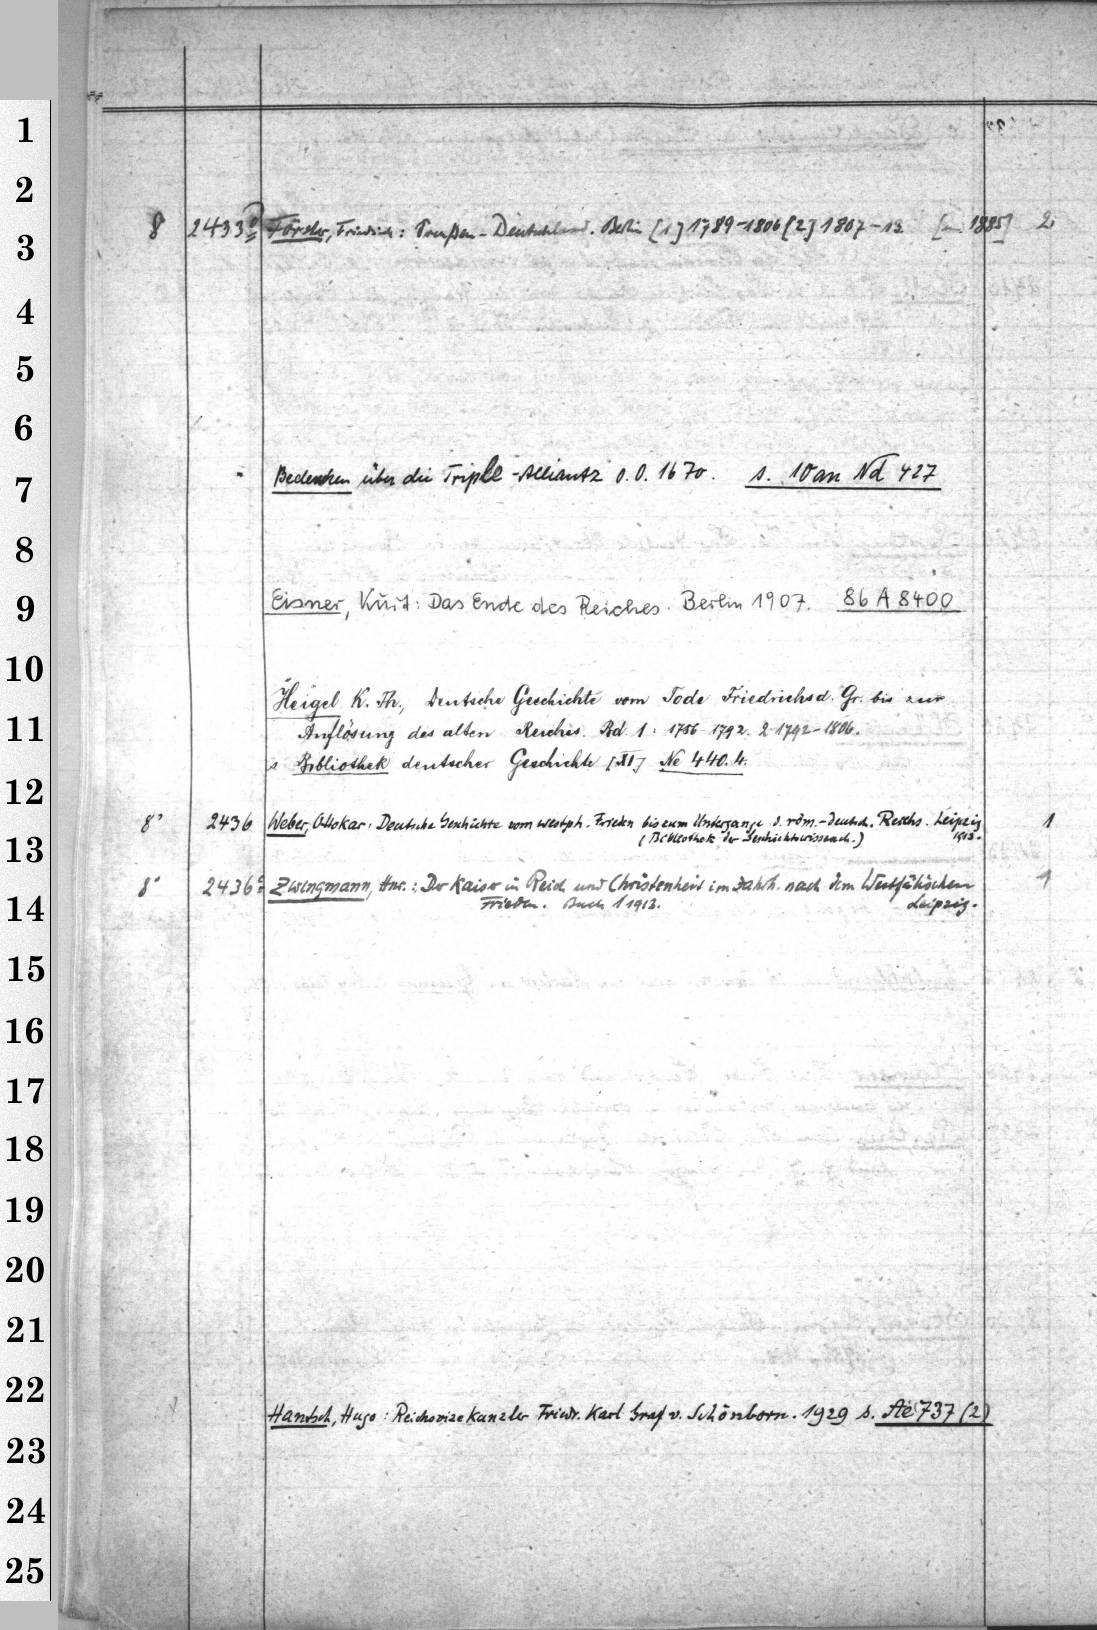 1
2
3
8 2433 Förster, Friedrich: Preußen-Deutschland. Berlin [1] 1789-1806 [2] 1807-13 1885] 2
4
5
6
7
Bedenken über die Triple-Alliantz o. O. 1670. s. 10 an Nd 427
8
9
Eisner, Kurt: Das Ende des Reiches. Berlin 1907. 86 A 8400
10
Heigel K. Th., Deutsche Geschichte vom Tode Friedrichs d. Gr. bis zur
11
Auflösung des alten Reiches. Bd 1: 1786-1792. 2 1792-1806.
s Bibliothek deutscher Geschichte [XI] Ne 440.4.
12
8° 2436 Weber, Ottokar: Deutsche Geschichte vom westph. Frieden bis zum Untergange d. röm.-deutsch. Reichs. Leipzig 1
13
(Bibliothek der Geschichtswissensch.) 1913.
8° 2436a Zwingmann, Hnr.: Der Kaiser in Reich und Christenheit im Jahrh. nach dem Westfälischen 1
14
Frieden. Buch 1 1913. Leipzig.
15
16
17
18
19
20
21
22
Hantsch, Hugo: Reichsvizekanzler Friedr. Karl Graf v. Schönborn. 1929 s. Ae 737 (2)
23
24
25